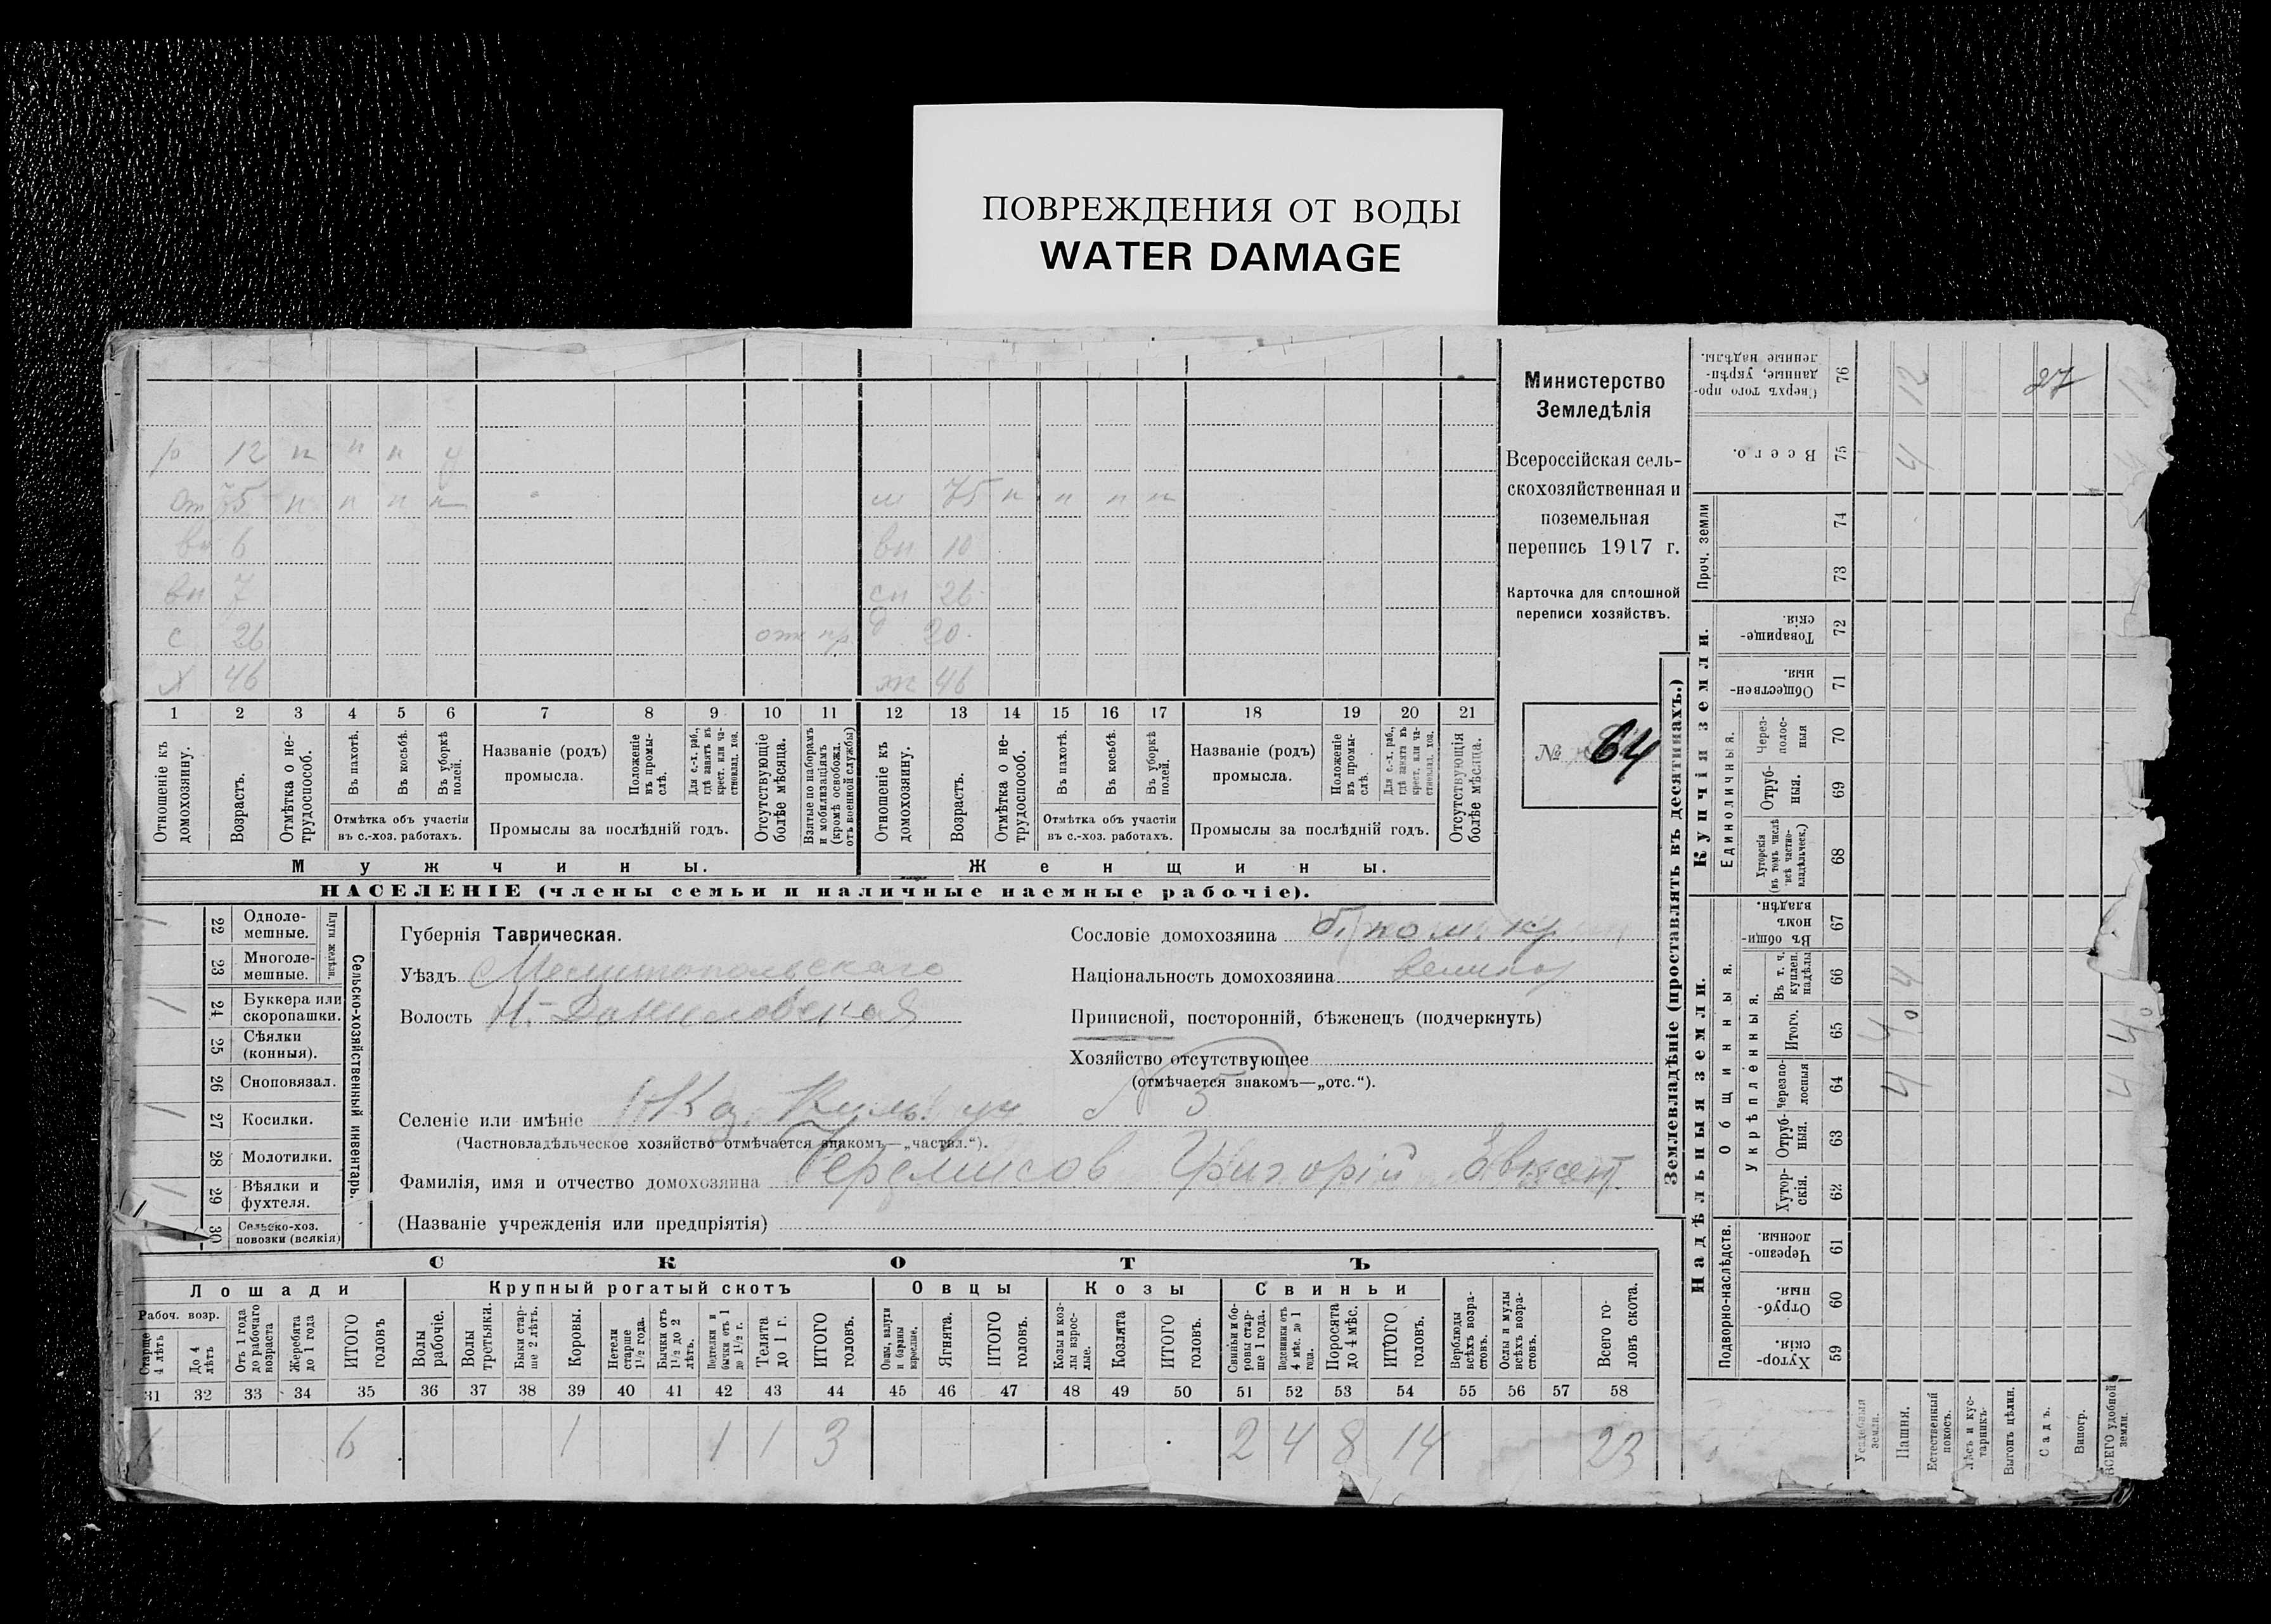 ПОВРЕЖДЕНИЯ ОТ ВОДЫ
WATER DAMAGE
р 12 п п п у
от 75 п п п п м 75 п п п п
вн 6 вн 10
вн 7 сн 26
с 26 отк пр. д 20
х 46 ж 46
1 2 3 4 5 6 7 8 9 10 11 12 13 14 15 16 17 18 19 20 21
Отношеніе къ домохозяину.
Возрастъ.
Отмѣтка о нетрудоспособ.
Въ пахотѣ.
Въ косьбѣ.
Въ уборкѣ полей.
Отмѣтка объ участіи
въ с.-хоз. работахъ.
Названіе (родъ)
промысла.
Положеніе въ промыслѣ.
Для с.-х. раб., гдѣ занятъ въ крест. или частновлад. хоз.
Промыслы за послѣдній годъ.
Отсутствующіе болѣе мѣсяца.
Взятые по наборамъ и мобилизаціямъ (кромѣ освобожд. отъ военной службы)
Отношеніе къ домохозяину.
Возрастъ.
Отмѣтка о нетрудоспособ.
Въ пахотѣ.
Въ косьбѣ.
Въ уборкѣ полей.
Отмѣтка объ участіи
въ с.-хоз. работахъ.
Названіе (родъ)
промысла.
Положеніе въ промыслѣ.
Для с.-х. раб., гдѣ занята въ крест. или частновлад. хоз.
Промыслы за послѣдній годъ.
Отсутствующія болѣе мѣсяца.
Мужчины. Женщины.
НАСЕЛЕНІЕ (члены семьи и наличные наемные рабочіе).
Министерство
Земледѣлія
Всероссійская сель-
скохозяйственная и
поземельная
перепись 1917 г.
Карточка для сплошной
переписи хозяйствъ.
№ 64
Сельско-хозяйственный инвентарь.
Плуги желѣзн.
1 22 Одноле-
мешные.
23 Многоле-
мешные.
1 24 Буккера или
скоропашки.
25 Сѣялки
(конныя).
26 Сноповязал.
1 27 Косилки.
28 Молотилки.
1 29 Вѣялки и
фухтеля.
30 Сельско-хоз.
повозки (всякія)
Губернія Таврическая.
Уѣздъ Мелитопольскаго
Волость Н-Даниловская
Сословіе домохозяина
Національность домохозяина
Приписной, посторонній, бѣженецъ (подчеркнуть)
Хозяйство отсутствующее
(отмѣчается знакомъ—„отс.“).
Селеніе или имѣніе № 5
(Частновладѣльческое хозяйство отмѣчается знакомъ—„частвл.“).
Фамилія, имя и отчество домохозяина Черемисов Григорій
(Названіе учрежденія или предпріятія)
СКОТЪ
Лошади Крупный рогатый скотъ Овцы Козы Свиньи
Рабоч. возр.
Старше 4 лѣтъ
До 4 лѣтъ
Отъ 1 года до рабочаго возраста
Жеребята до 1 года
ИТОГО головъ
Волы рабочіе.
Волы третьяки.
Быки старше 2 лѣтъ.
Коровы.
Нетели старше 1½ года.
Бычки отъ 1½ до 2 лѣтъ.
Подтелки и бычки отъ 1 до 1½ г.
Телята до 1 г.
ИТОГО головъ.
Овцы, валухи и бараны взрослые.
Ягнята.
ИТОГО головъ.
Козы и козлы взрослые.
Козлята
ИТОГО головъ.
Свиньи и боровы старше 1 года.
Подсвинки отъ 4 мѣс. до 1 года.
Поросята до 4 мѣс.
ИТОГО головъ.
Верблюды всѣхъ возрастовъ.
Ослы и мулы всѣхъ возрастовъ.
Всего головъ скота.
31 32 33 34 35 36 37 38 39 40 41 42 43 44 45 46 47 48 49 50 51 52 53 54 55 56 57 58
6 1 1 1 3 2 4 8 14 23
Землевладѣніе (проставлять въ десятинахъ.)
Надѣльныя земли. Купчія земли. Проч. земли
Подворно-наслѣдств.
Общинныя.
Укрѣпленныя.
Единоличныя.
Хуторскія. 59
Отрубныя. 60
Черезполосныя. 61
Хуторскія. 62
Отрубныя. 63
Черезполосныя 64
Итого. 65
Въ т. ч. куплен. надѣлы 66
Въ общинномъ владѣн. 67
Хуторскія (въ томъ числѣ всѣ частновладѣльческ.) 68
Отрубныя. 69
Черезполосныя 70
Общественныя. 71
Товарищескія. 72
73
74
Всего. 75
Сверхъ того проданные, укрѣпленные надѣлы. 76
Усадебныя земли.
Пашня. 4 4 12
Естественный покосъ.
Лѣсъ и кустарникъ
Выгонъ цѣлин.
Садъ. 27
Виногр.
ВСЕГО удобной земли.